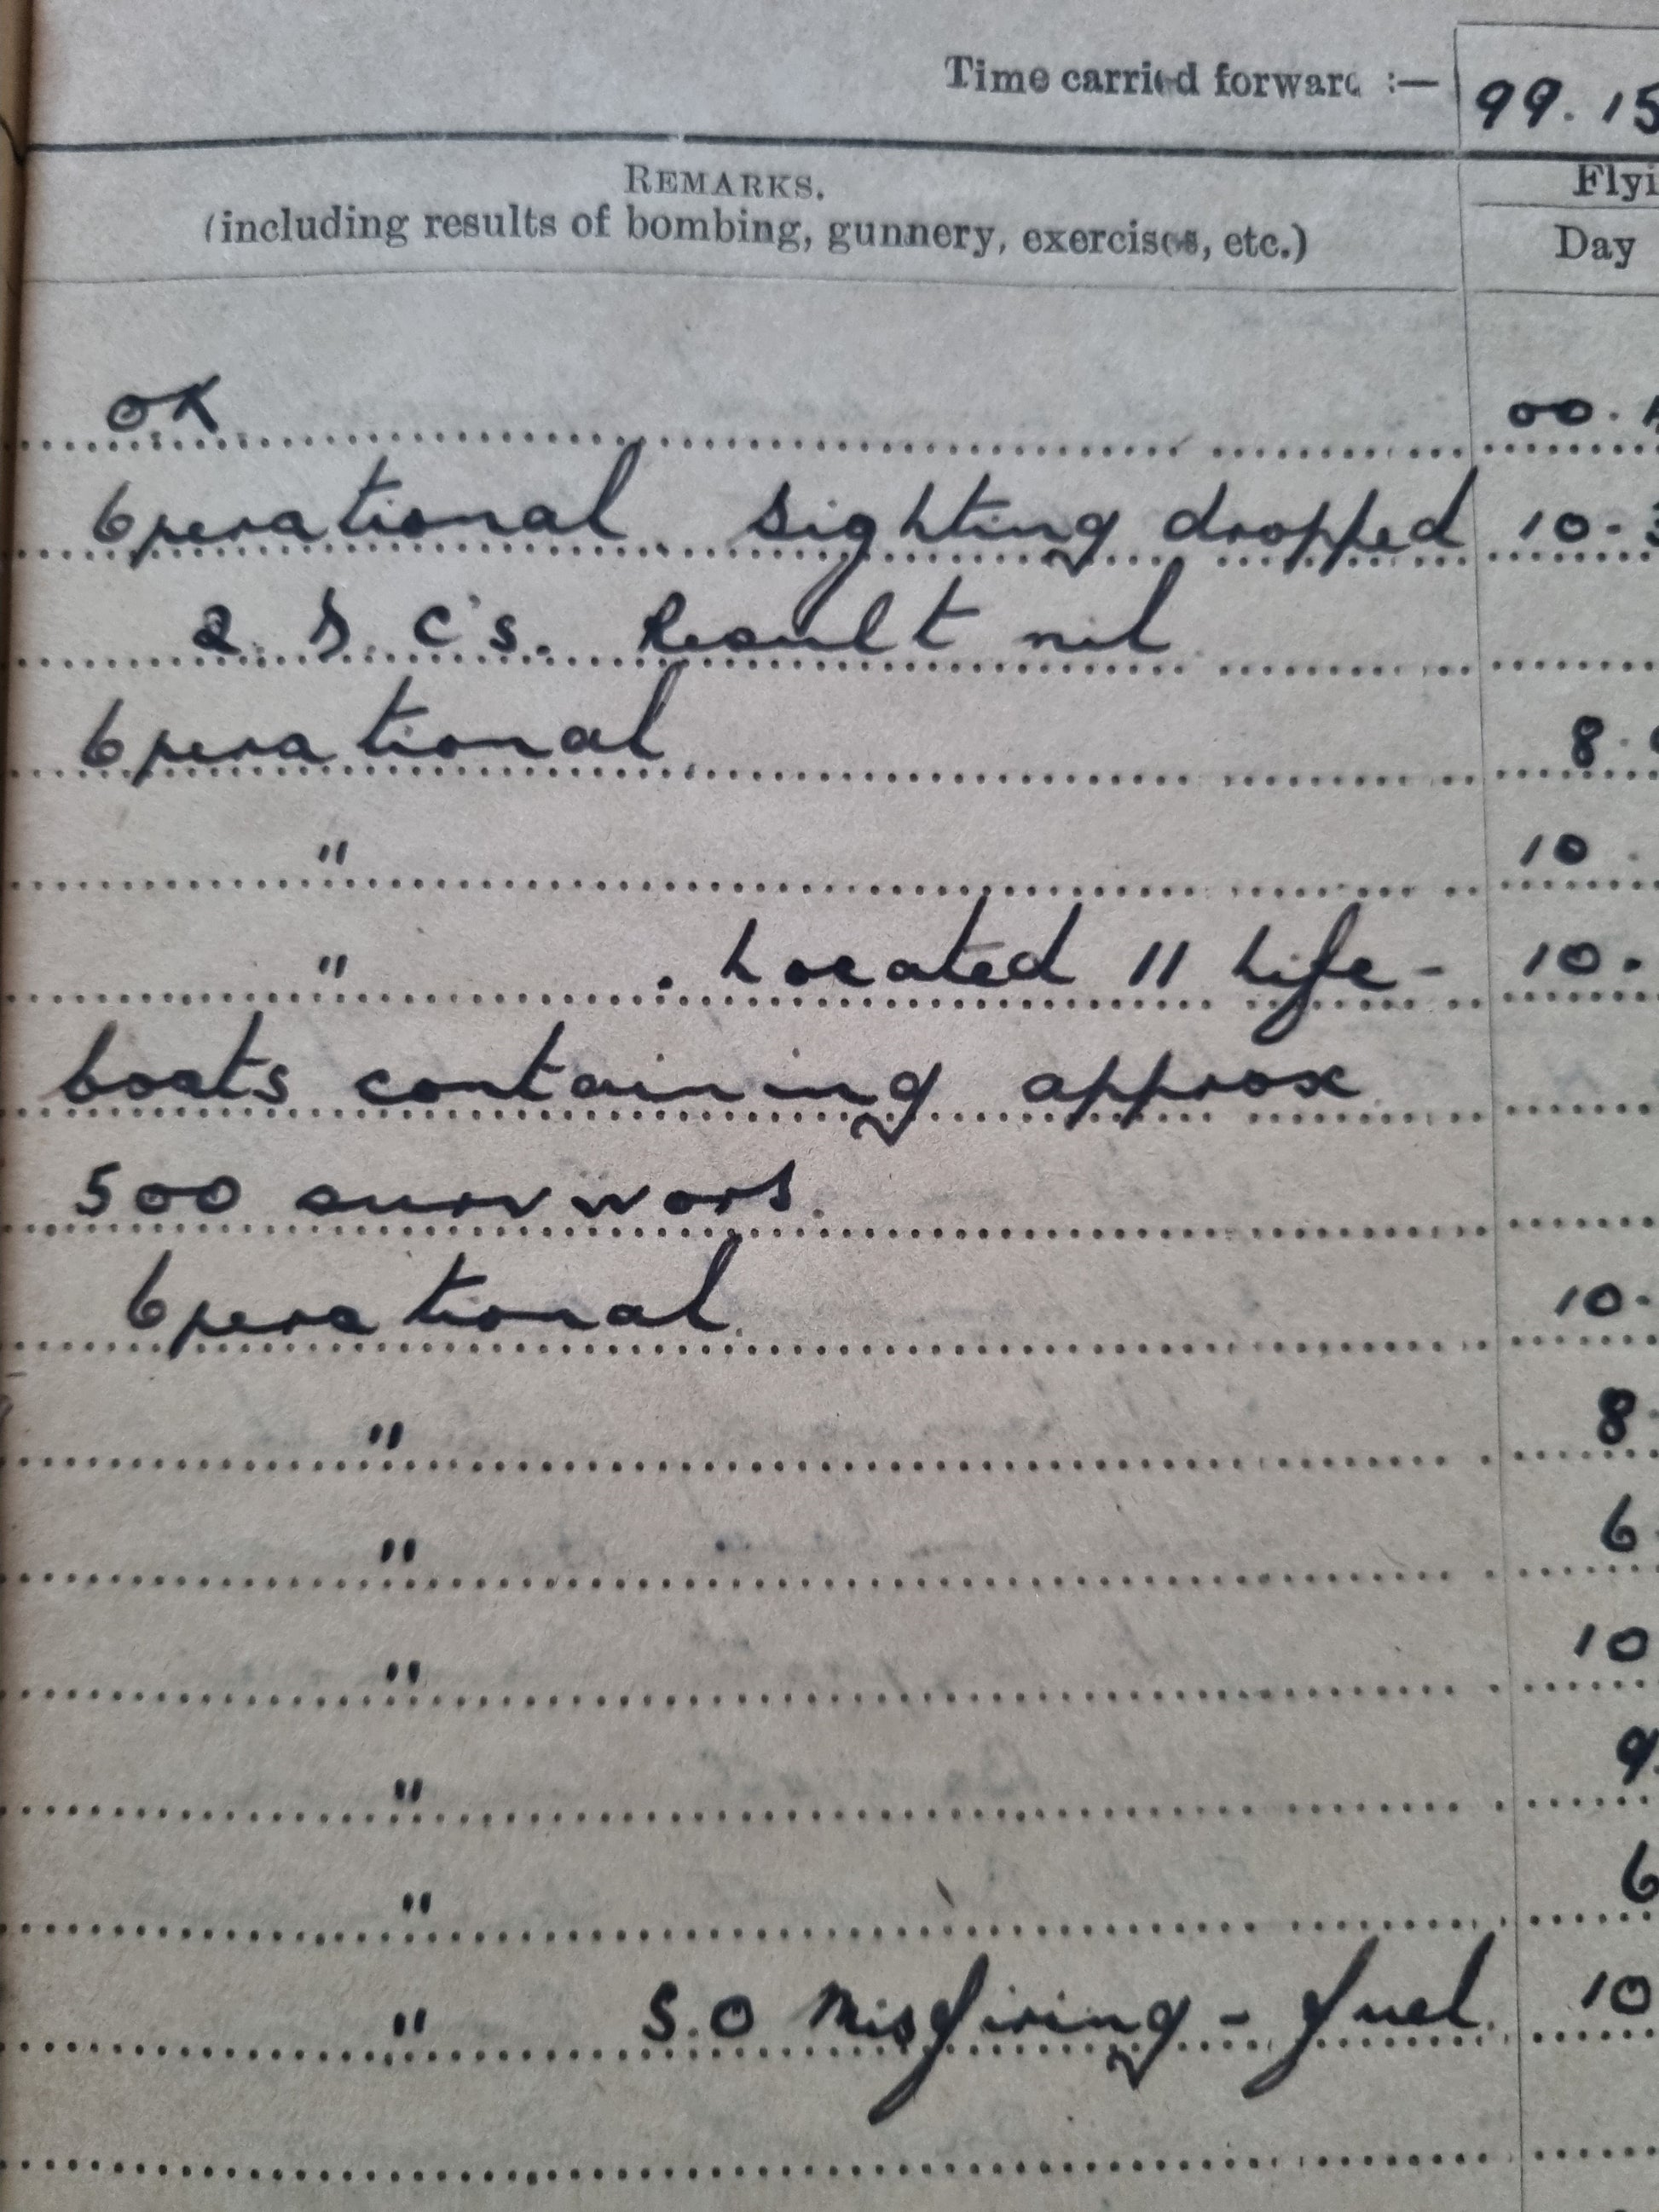 Time carried forward :— 99.15
REMARKS. Flyi
(including results of bombing, gunnery, exercises, etc.) Day
OK 00.
Operational. Sighting dropped 10.
2. D. C's. Result nil
Operational. 8.
" 10.
" . Located 11 Life- 10.
boats containing approx
500 survivors.
Operational. 10.
" 8.
" 6.
" 10
" 9.
" 6
" S.O Misfiring - fuel. 10